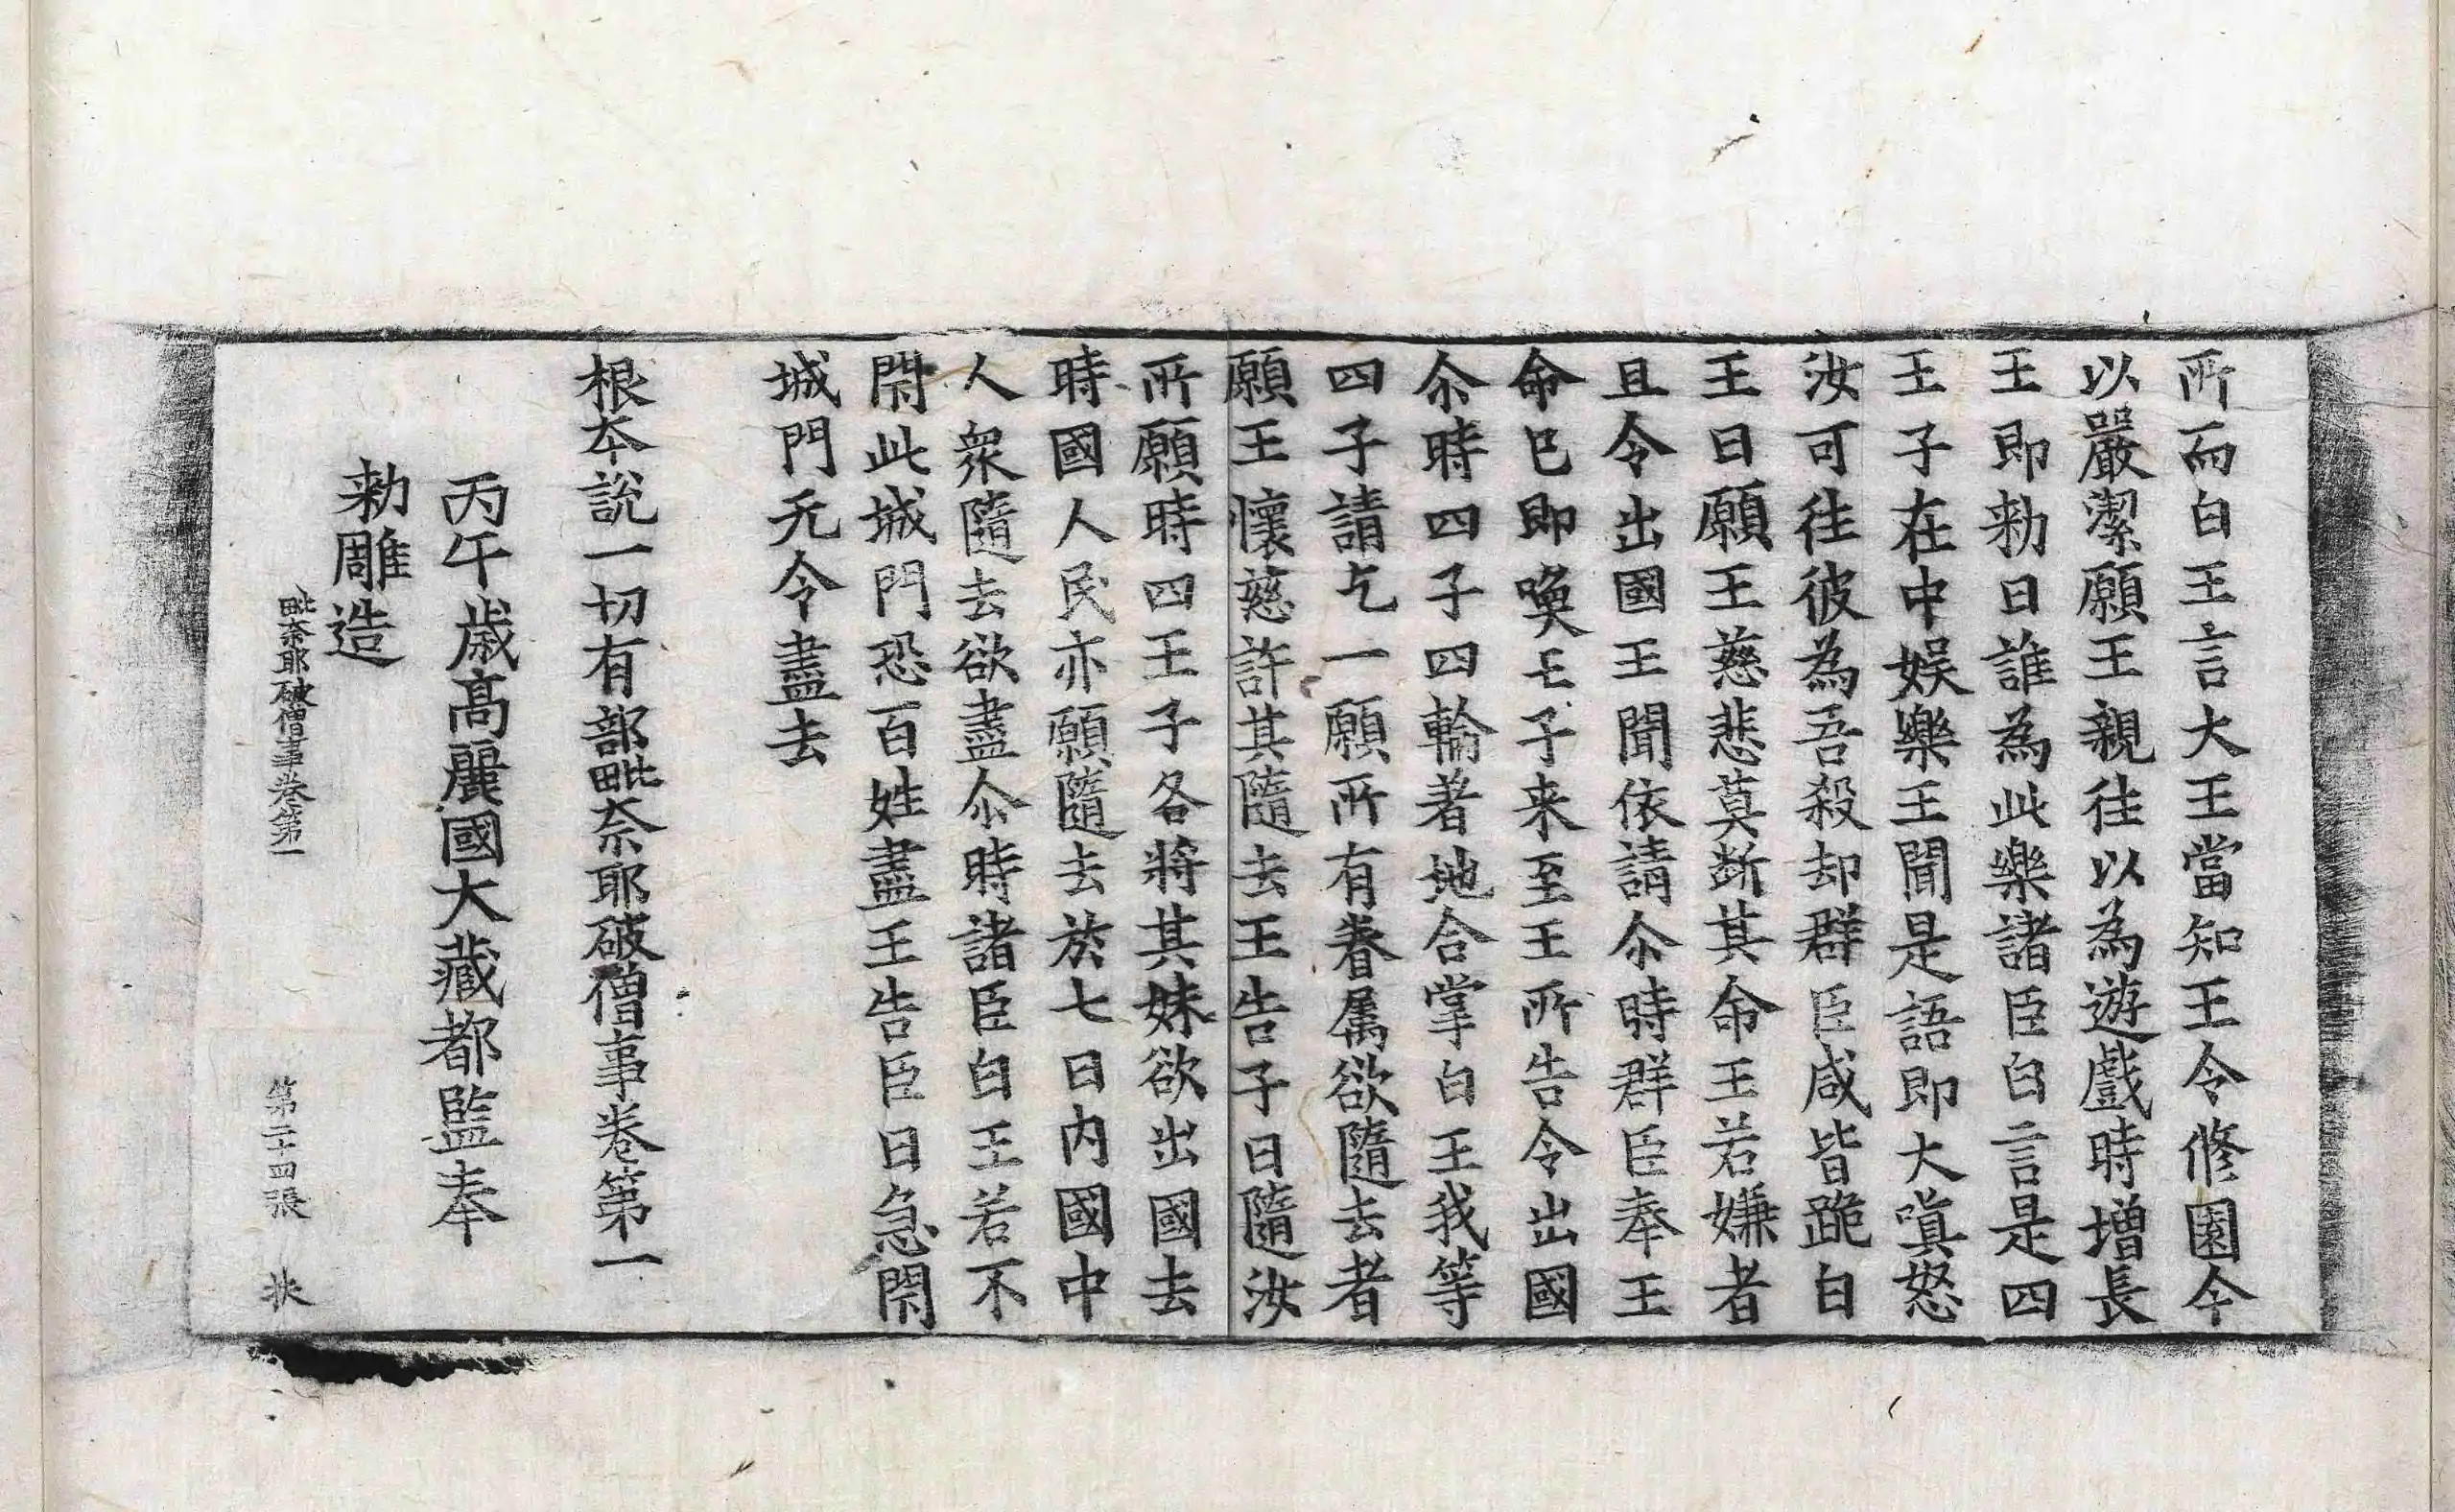 所而白王言大王當知王令修園今
以嚴潔願王親往以為遊戲時增長
王即勑曰誰為此樂諸臣白言是四
王子在中娛樂王聞是語即大嗔怒
汝可往彼為吾殺却群臣咸皆跪白
王曰願王慈悲莫斷其命王若嫌者
且令出國王聞依請尒時群臣奉王
命已即喚王子来至王所告令出國
尒時四子四輪著地合掌白王我等
四子請乞一願所有眷属欲隨去者
願王懷慈許其隨去王告子曰隨汝
所願時四王子各將其妹欲出國去
時國人民亦願隨去於七日內國中
人衆隨去欲盡尒時諸臣白王若不
閇此城門恐百姓盡王告臣曰急閇
城門无令盡去
根本說一切有部毗奈耶破僧事卷第一
丙午歳髙麗國大藏都監奉
勑雕造
毗奈耶破僧事卷第一 第二十四張